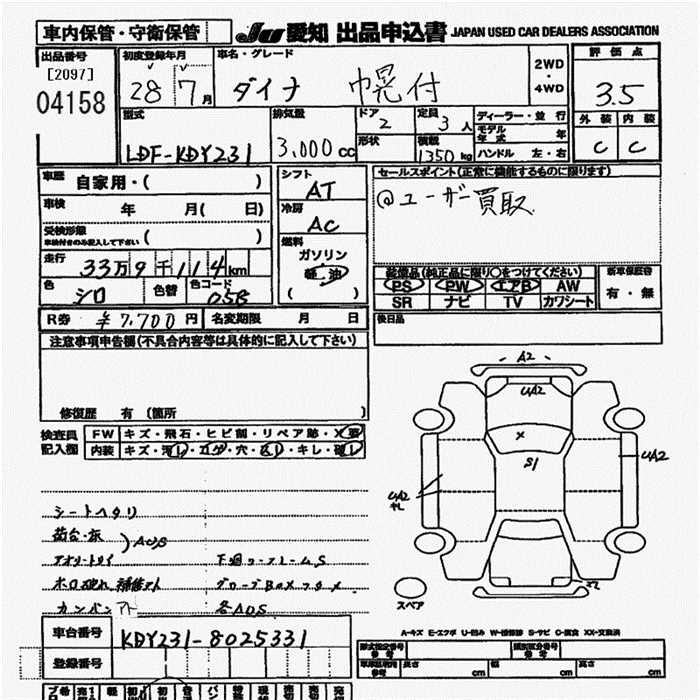 車内保管・守衛保管
JU 愛知 出品申込書 JAPAN USED CAR DEALERS ASSOCIATION
出品番号
[2097]
04158
初度登録年月
28 7月
車名・グレード
ダイナ 幌付
2WD
・
4WD
評価点
3.5
外装 内装
C C
型式
LDF-KDY231
排気量
3,000cc
ドア
2
形状
定員
3人
積載
1350kg
ディーラー・並行
モデル年式 年
ハンドル 左・右
車歴 自家用・( )
車検 年 月( 日)
受検形録
車検付きのみ記入して下さい ( )
走行 33万9千114km
色 シロ 色替 色コード 058
シフト
AT
冷房
AC
燃料
ガソリン
軽油
( )
セールスポイント(正常に機能するものに限ります)
@ユーザー買取
装備品(純正品に限り○をつけてください)
PS PW エアB AW
SR ナビ TV カワシート
新車保証書
有・無
R券 ¥7,700円 名変期限 月 日
後日品
注意事項申告欄(不具合内容等は具体的に記入して下さい)
修復歴 有 (箇所 )
検査員
記入欄
FW キズ・飛石・ヒビ割・リペア跡・X要
内装 キズ・汚レ・コゲ・穴・スレ・キレ・破レ
シートヘタリ
荷台・床
)AUS
アオリ・トリイ 下廻り・フレームS
ホロ破れ 補修アト グローブBOXフタ✓
カンバンアト 各AUS
A2
UA2
X
S1
UA2
UA2
スペア
A-キズ E-エクボ U-凹み W-補修跡 S-サビ C-腐食 XX-交換済
車台番号 KDY231-8025331
登録番号
型式指定番号
参考
類別区分番号
参考
長さ cm 幅 cm 高さ cm